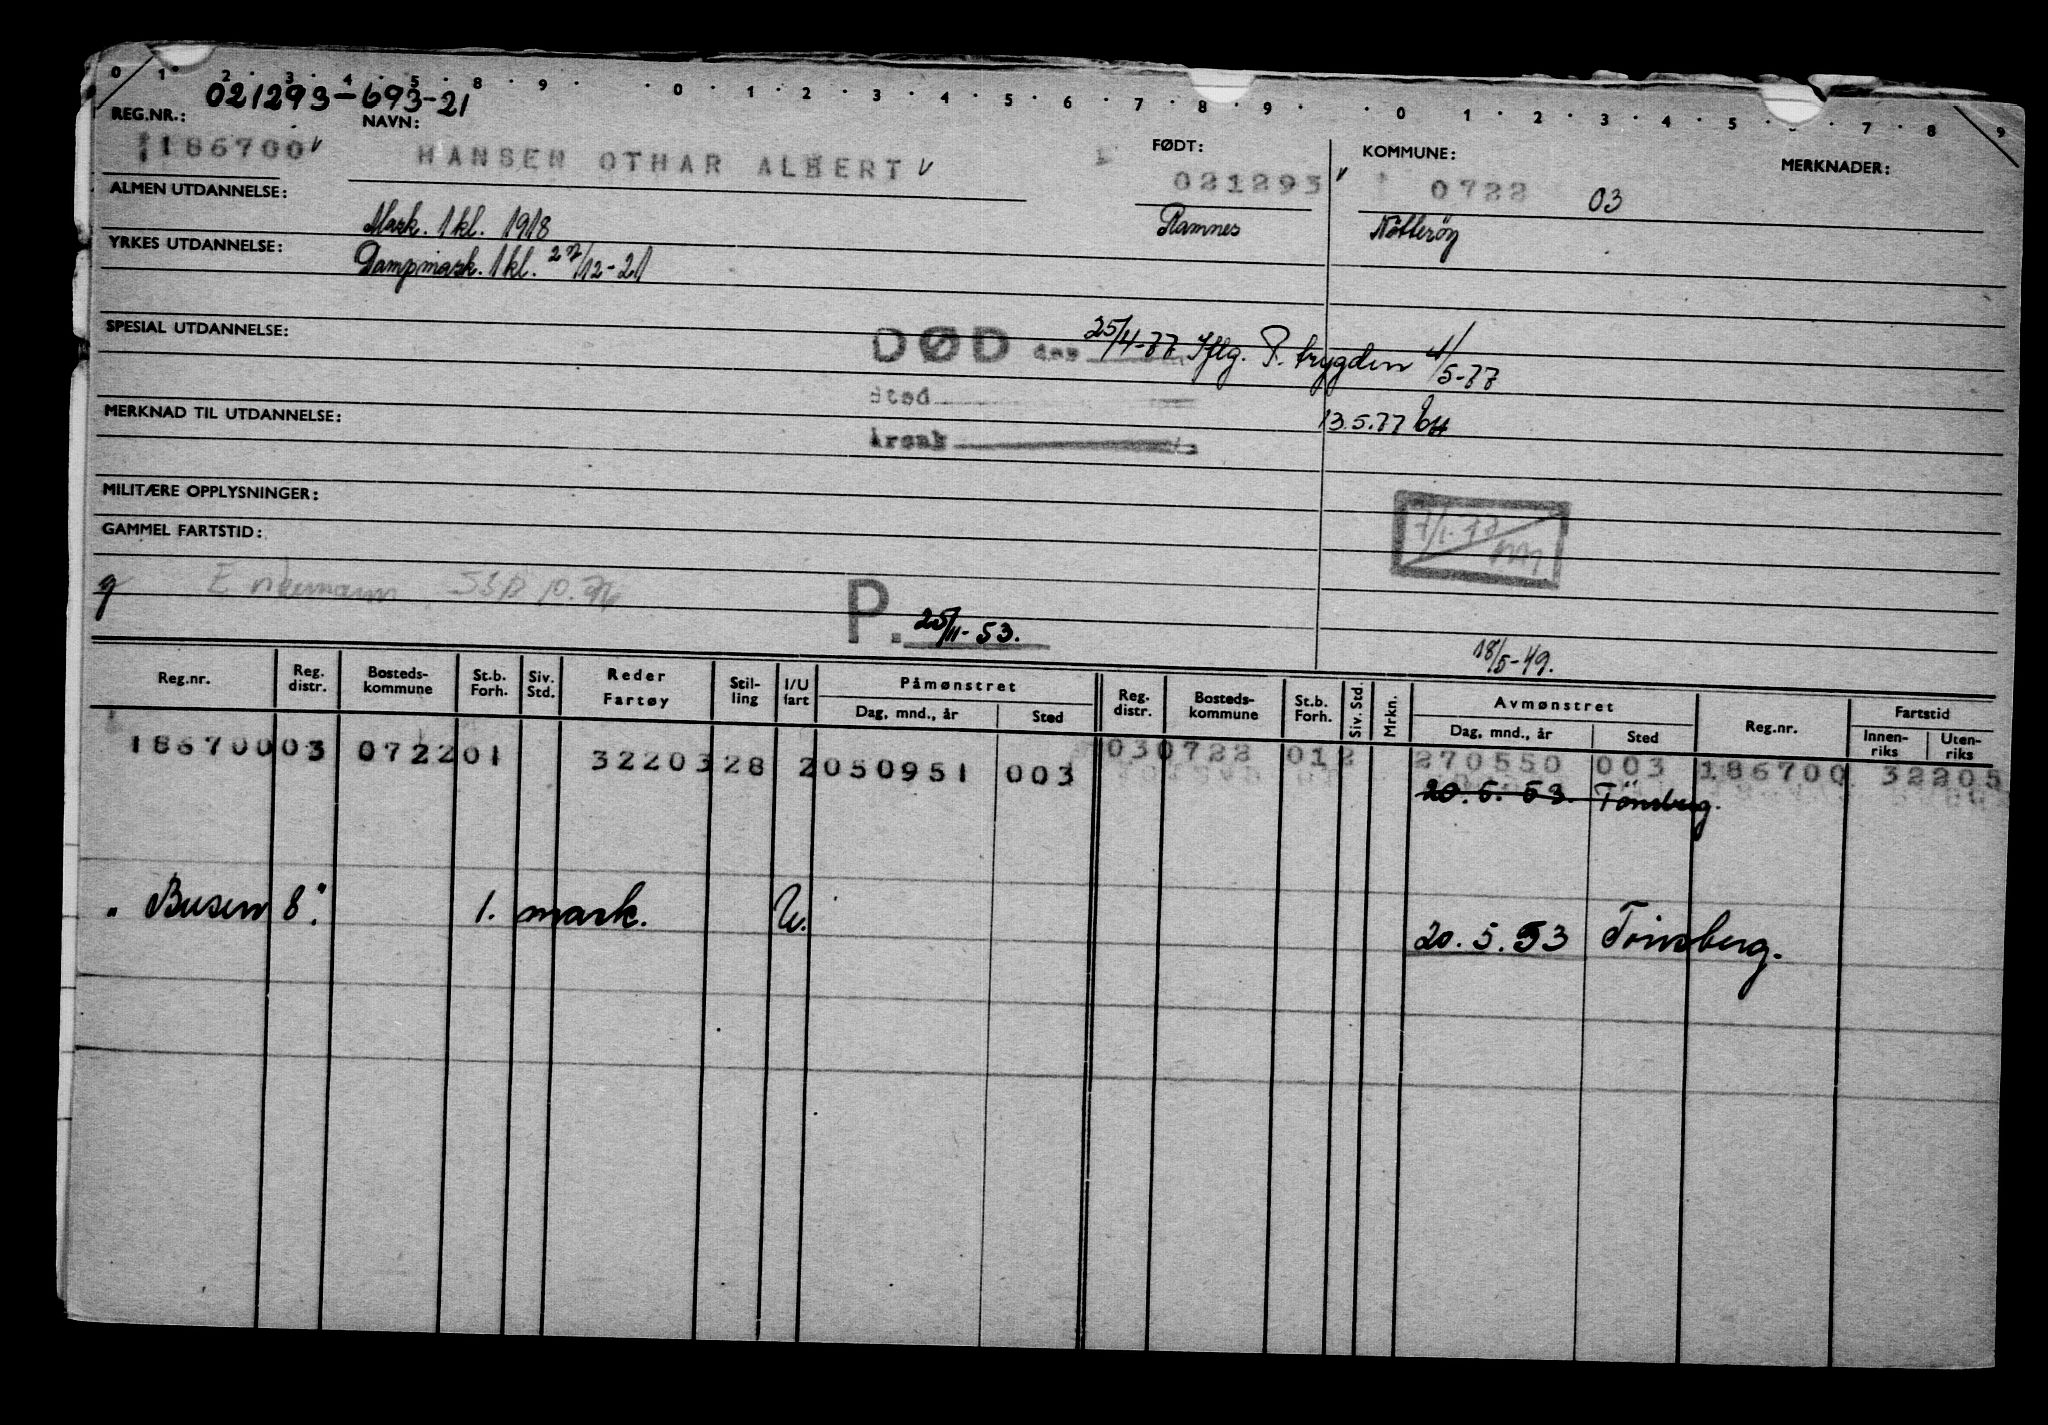 0 1 2 3 4 5 8 9 0 1 2 3 4 5 6 7 8 9 0 1 2 3 4 5 7 8 9
021293-693-21
REG.NR.: NAVN: FØDT: KOMMUNE: MERKNADER:
186700 HANSEN OTHAR ALBERT 021293 0722 03
ALMEN UTDANNELSE: Mask. 1 kl. 1918 Ramnes Nötteröy
YRKES UTDANNELSE: Dampmask. 1 kl. 27/12-21
SPESIAL UTDANNELSE: DØD den 25/4-77 Iflg. P. trygden 4/5-77
Sted
MERKNAD TIL UTDANNELSE: 13.5.77
Årsak
MILITÆRE OPPLYSNINGER:
GAMMEL FARTSTID:
g
P. 25/11-53.
18/5-49.
Reg.nr. Reg. distr. Bosteds-kommune St.b. Forh. Siv. Std. Reder Fartøy Stil-ling I/U fart Påmønstret Dag, mnd., år Sted Reg. distr. Bosteds-kommune St.b. Forh. Siv. Std. Mrkn. Avmønstret Dag, mnd., år Sted Reg.nr. Fartstid Innen-riks Uten-riks
186700 03 0722 01 32203 28 2 050951 003 03 0722 012 270550 003 186700 32205
20.5.53. Tönsberg.
" Busen 8". 1. mask. U. 20.5.53 Tönsberg.